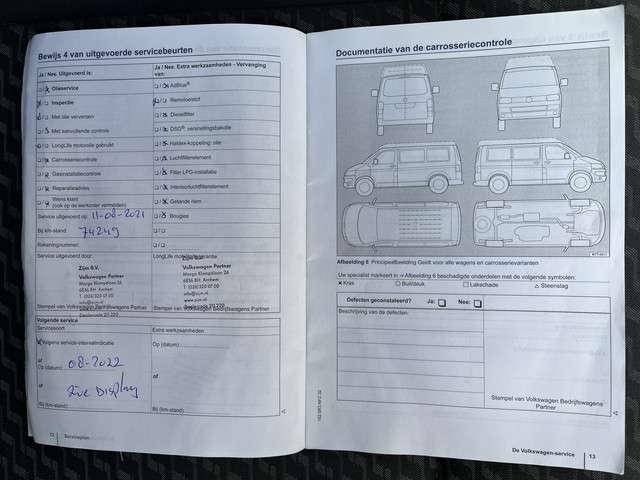 Bewijs 4 van uitgevoerde servicebeurten
Ja / Nee. Uitgevoerd is:
Ja / Nee. Extra werkzaamheden - Vervanging van:
Olieservice
AdBlue®
Inspectie
Remvloeistof
Met olie verversen
Dieselfilter
Met aanvullende controle
DSG®: versnellingsbakolie
LongLife motorolie gebruikt
Haldex-koppeling: olie
Carrosseriecontrole
Luchtfilterelement
Gasinstallatiecontrole
Filter LPG-installatie
Reparatieadvies
Interieurluchtfilterelement
Wens klant
(ook op de werkorder vermelden)
Getande riem
Service uitgevoerd op: 11-08-2021
Bougies
Bij km-stand: 74249
Rekeningnummer:
Service uitgevoerd door:
LongLife mobiliteitsgarantie
Zijm B.V.
Volkswagen Partner
Marga Klompélaan 26
6836 BH Arnhem
T. (026) 323 07 00
info@zijm.nl
www.zijm.nl
Stempel van Volkswagen Bedrijfswagens Partner
Stempel van Volkswagen Bedrijfswagens Partner
Volgende service
Servicesoort
Extra werkzaamheden
Volgens service-intervalindicatie
Op (datum)
of
Op (datum) 08-2022
of
of
Zie Display
Bij (km-stand)
Bij (km-stand)
12
Serviceplan
Documentatie van de carrosseriecontrole
Afbeelding 6 Principeafbeelding Geldt voor alle wagens en carrosserievarianten
Uw specialist markeert in → Afbeelding 6 beschadigde onderdelen met de volgende symbolen:
× Kras
○ Buil/deuk
□ Lakschade
△ Steenslag
Defecten geconstateerd?
Ja:
Nee:
Beschrijving van de defecten:
Stempel van Volkswagen Bedrijfswagens
Partner
De Volkswagen-service
13